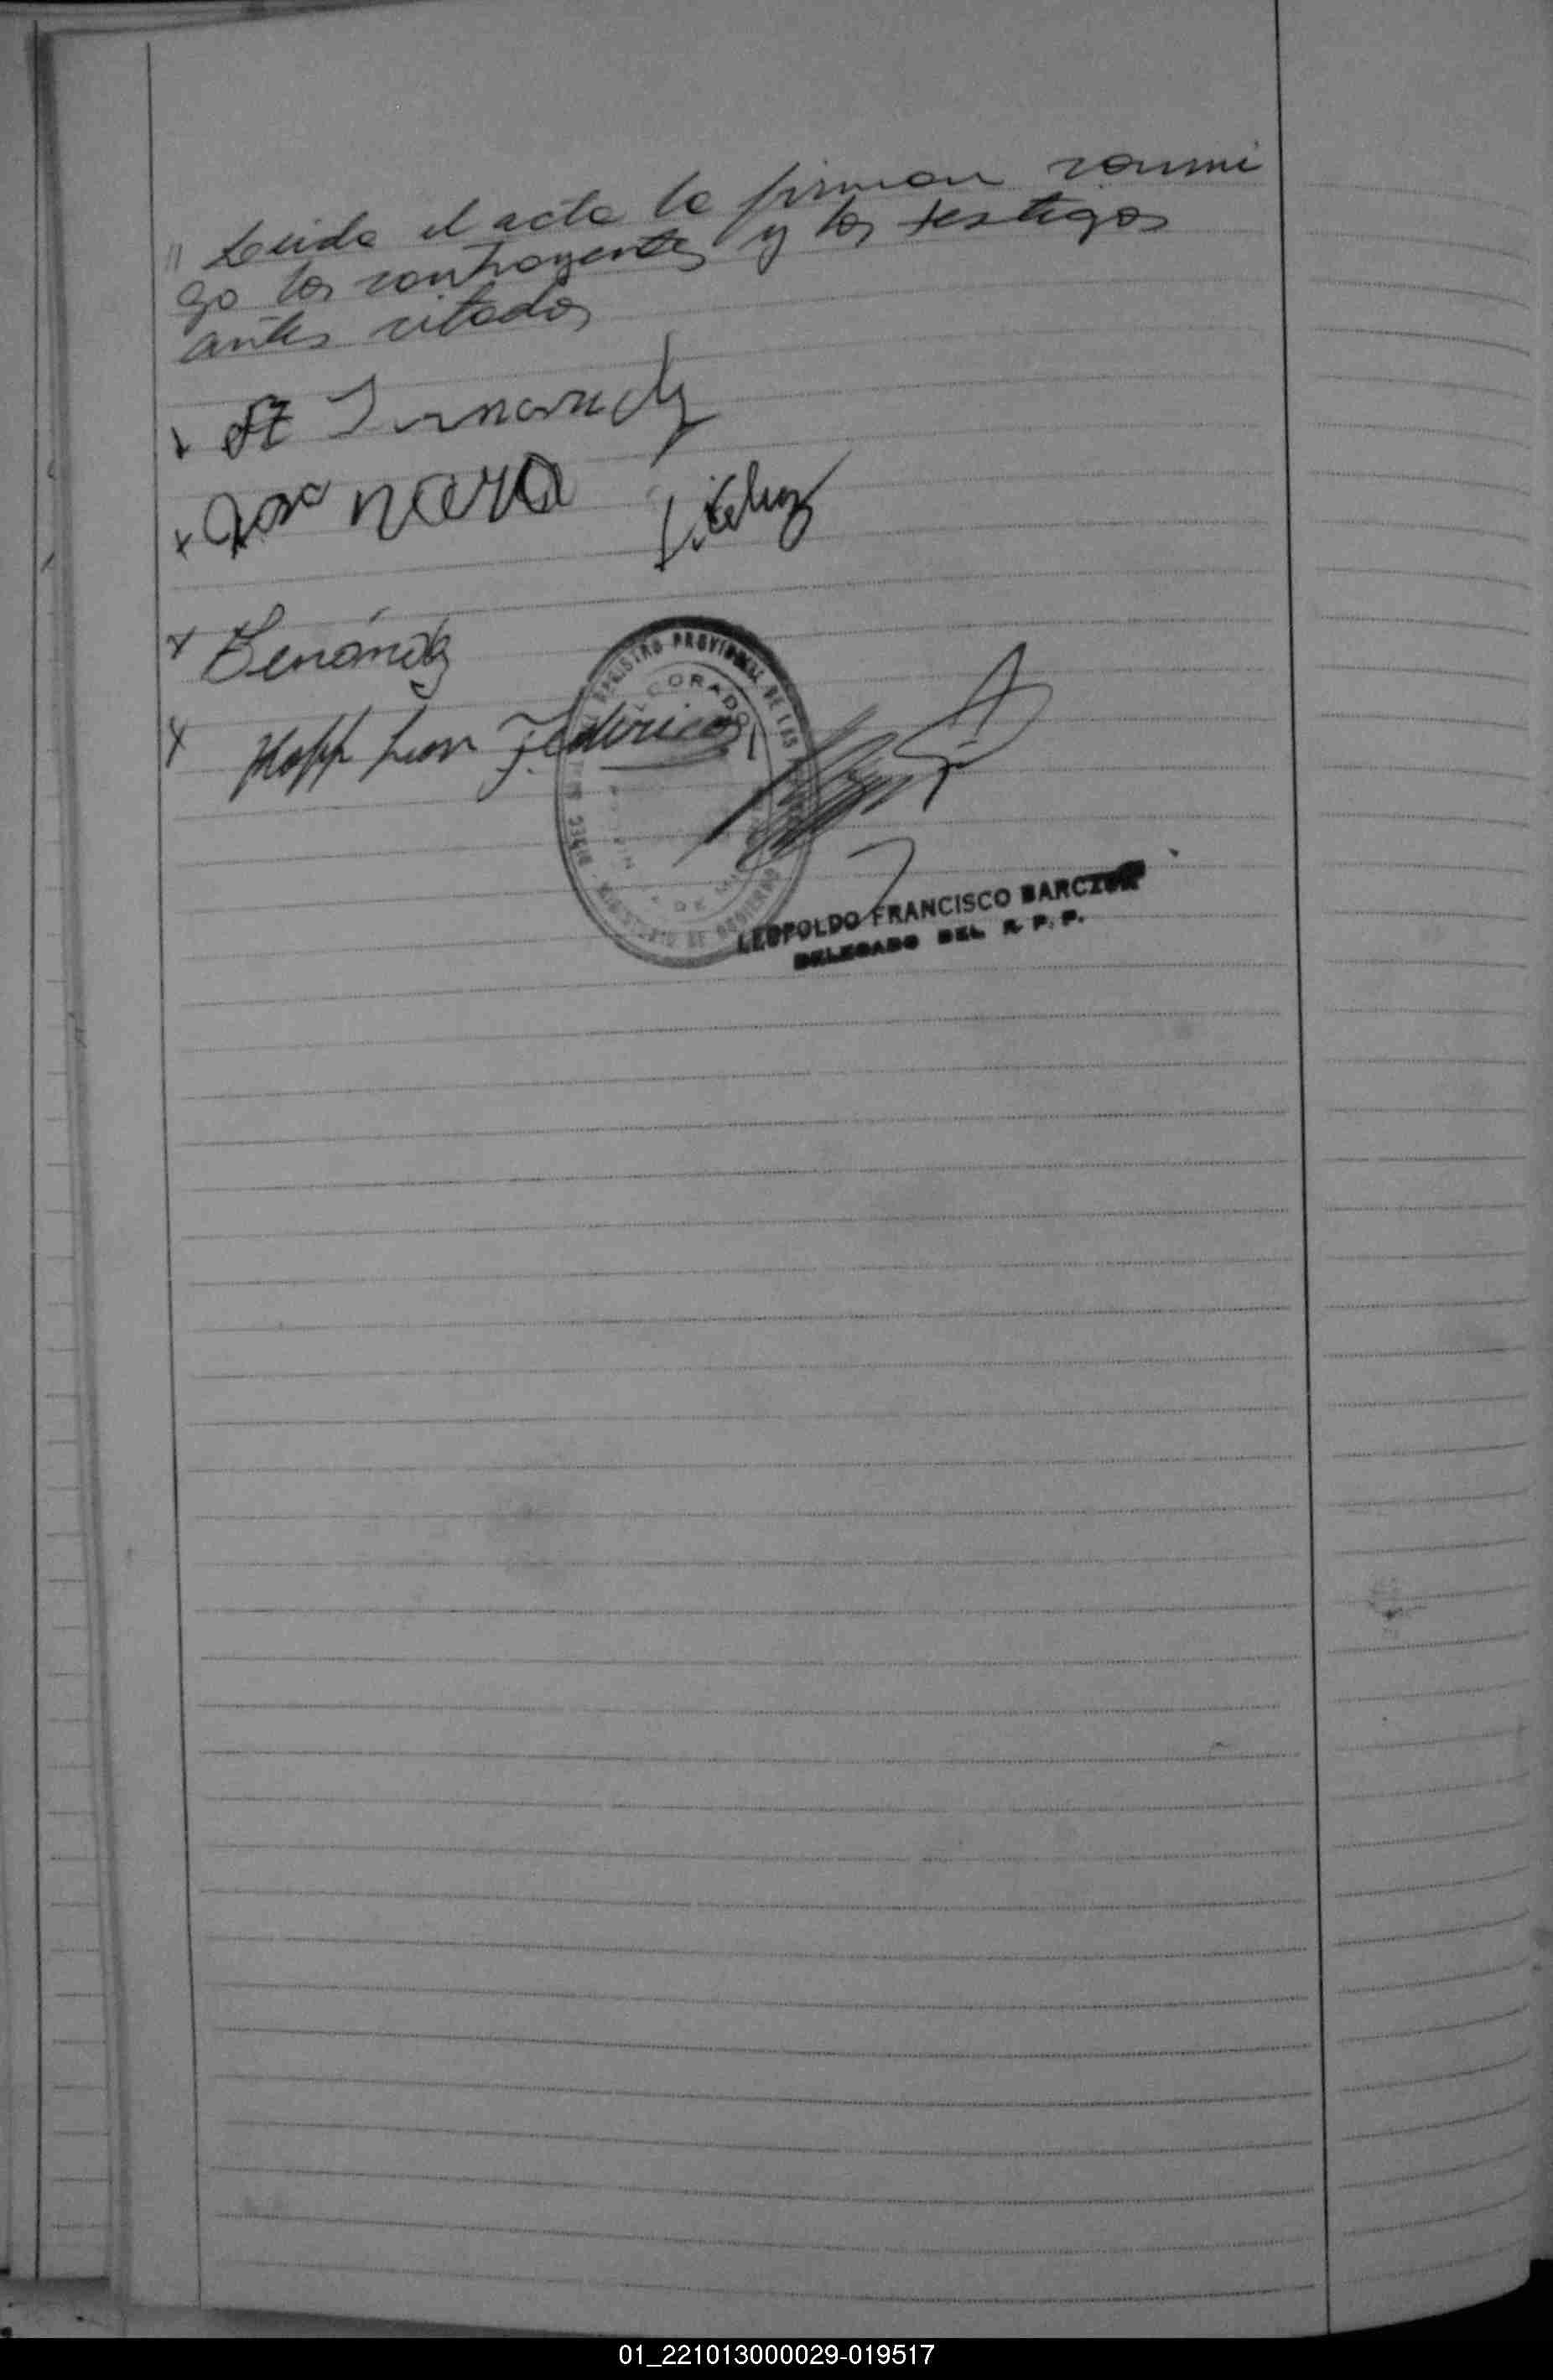 " Leida el acta la firman conmi
go los contrayentes y los testigos
antes citados
Rosa nara
Fernández
Hopp Leon Federico
REGISTRO PROVINCIAL DE LAS
DORADO
MINISTERIO DE GOBIERNO
LEOPOLDO FRANCISCO
DELEGADO DEL R. P. P.
01_221013000029-019517